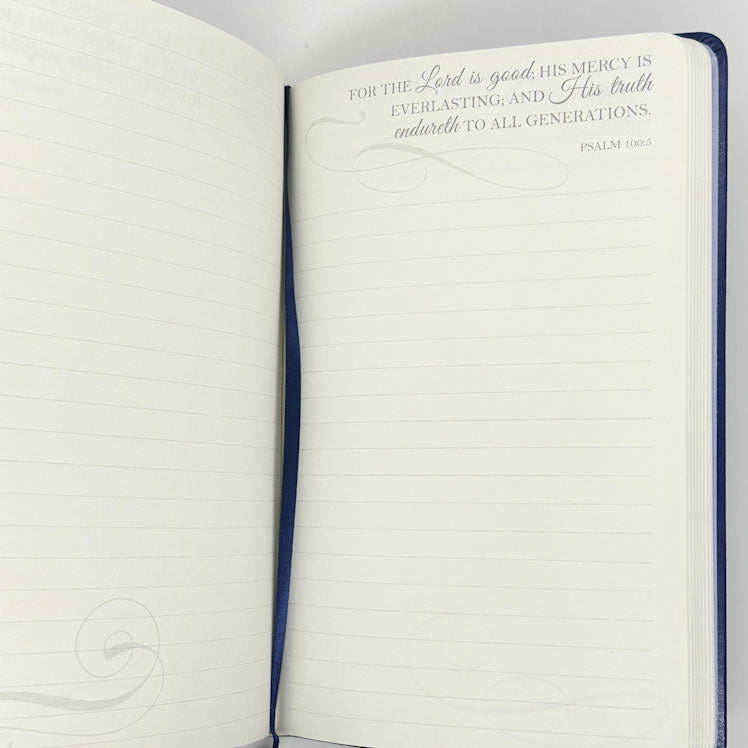 FOR THE Lord is good; HIS MERCY IS
EVERLASTING; AND His truth
endureth TO ALL GENERATIONS.
PSALM 100:5